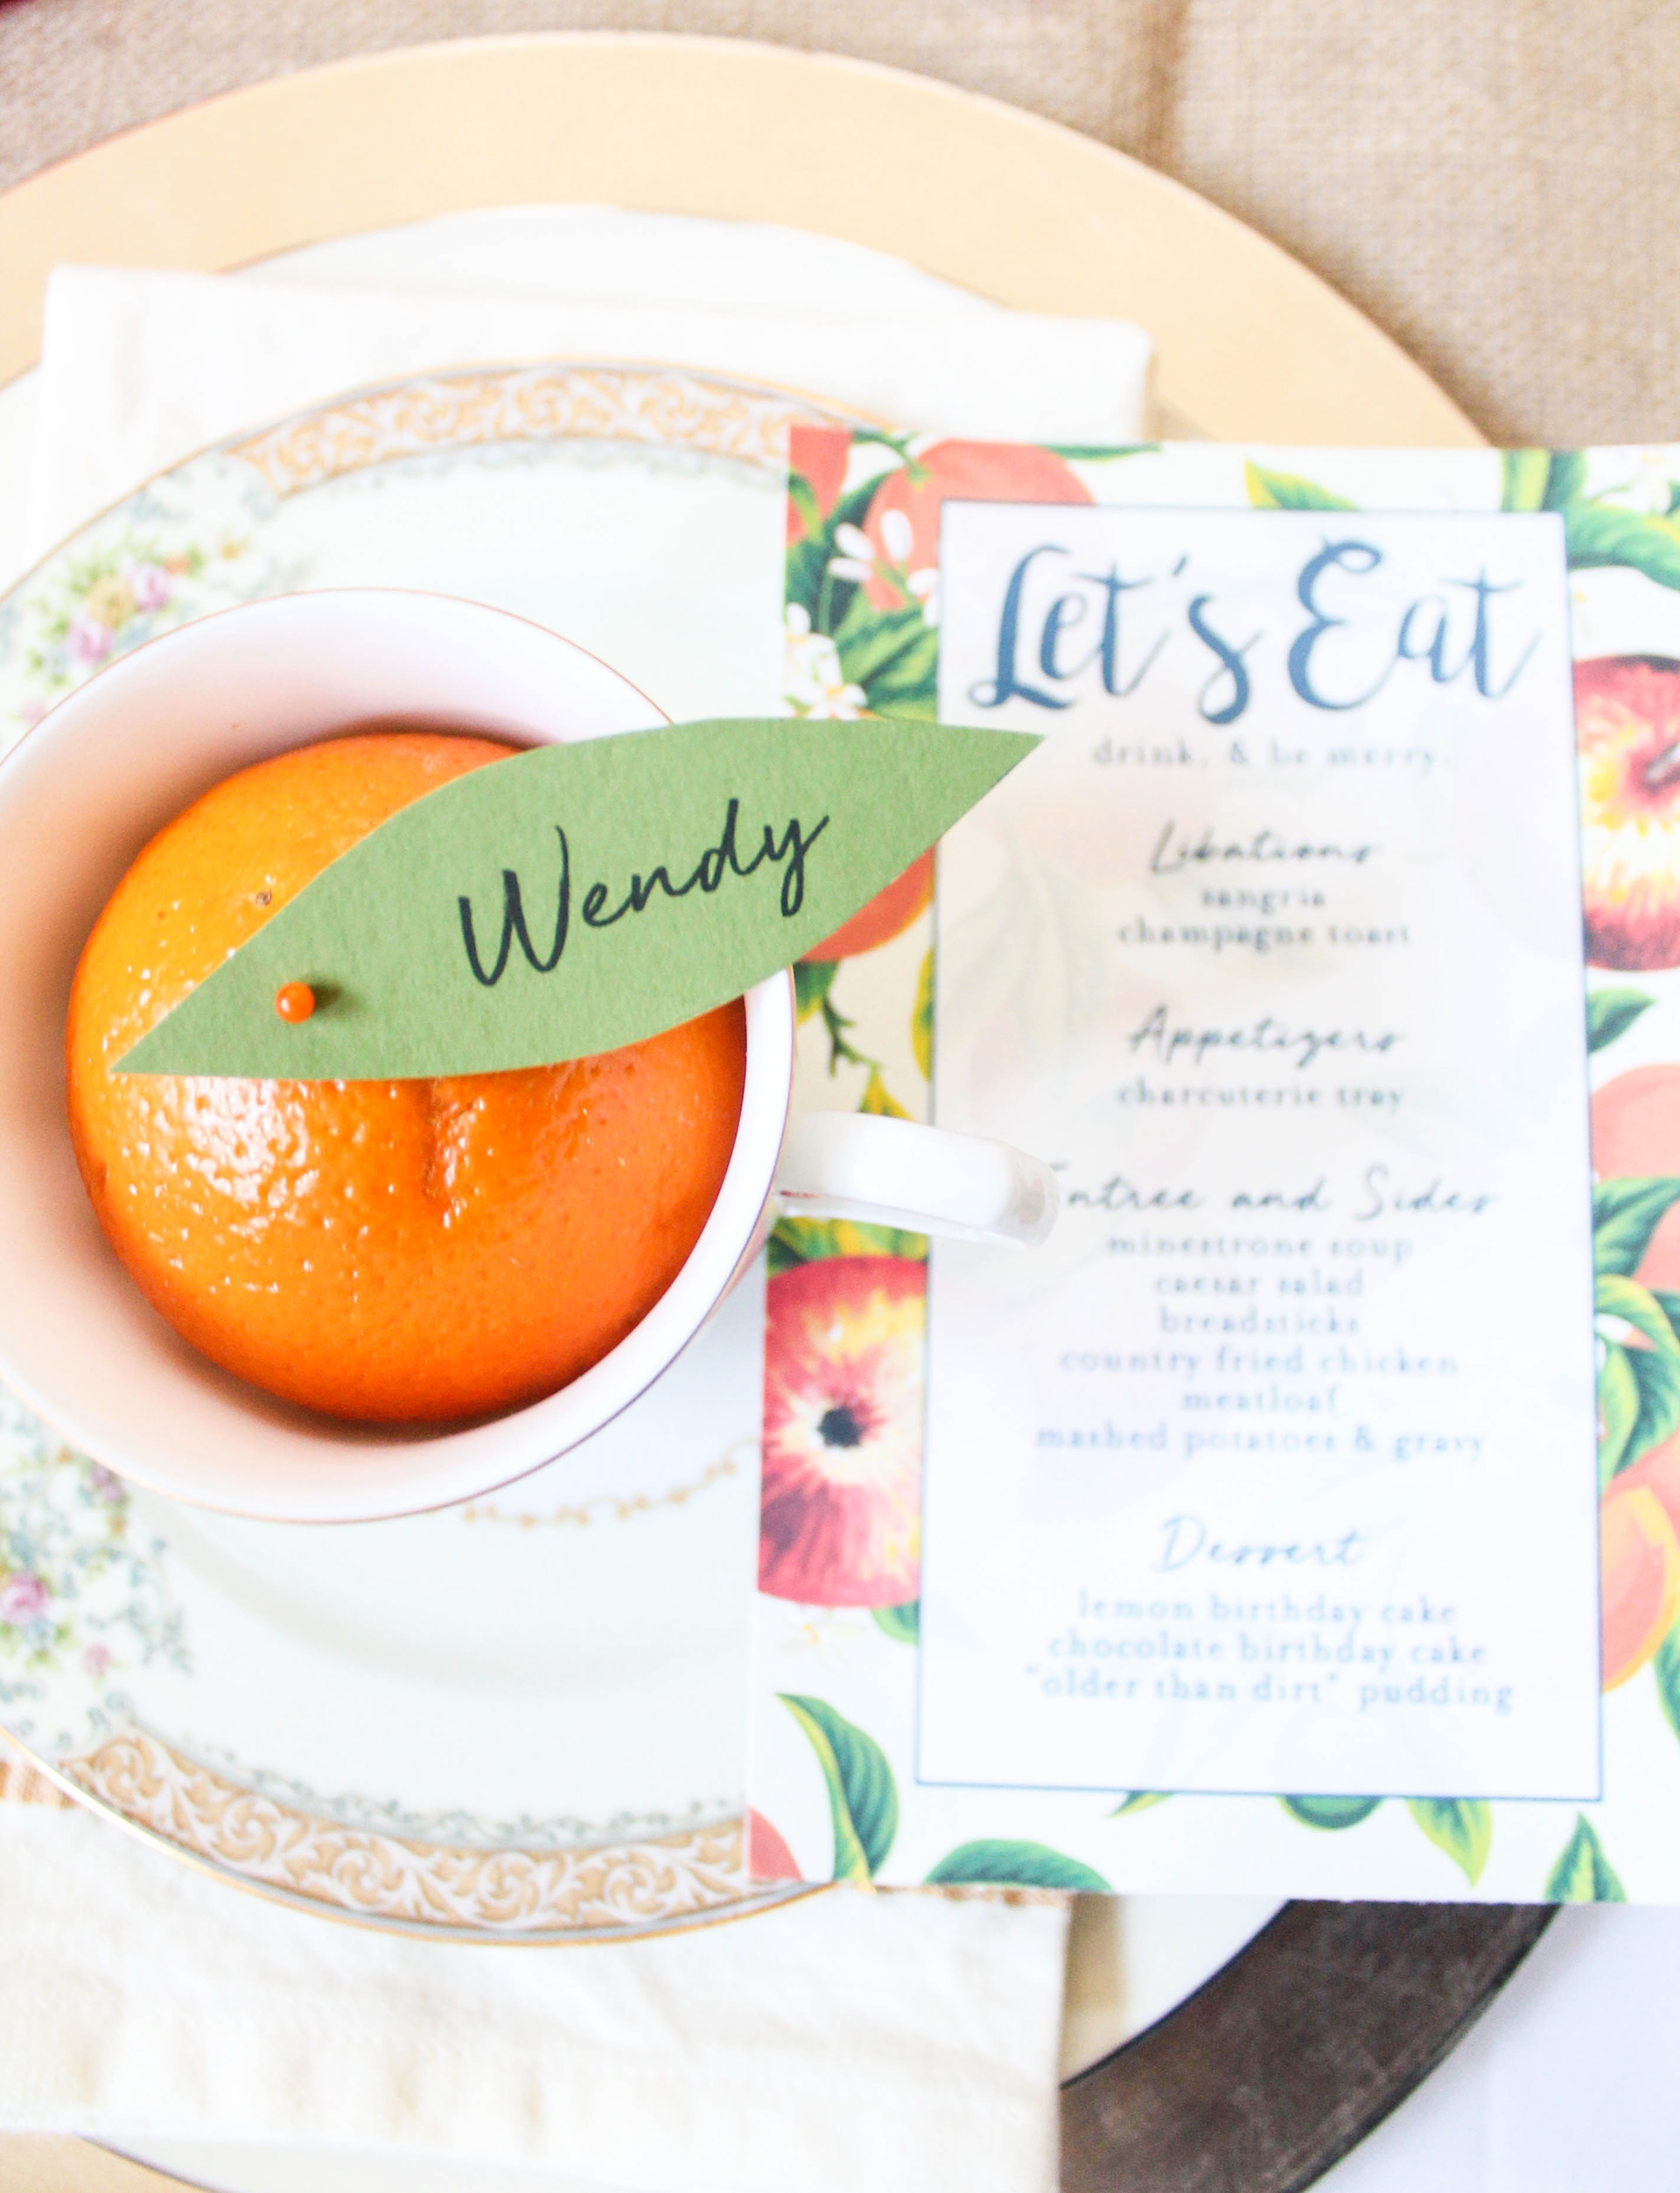 Wendy
Let's Eat
drink, & be merry.
Libations
sangria
champagne toast
Appetizers
charcuterie tray
Entree and Sides
minestrone soup
caesar salad
breadsticks
country fried chicken
meatloaf
mashed potatoes & gravy
Dessert
lemon birthday cake
chocolate birthday cake
"older than dirt" pudding